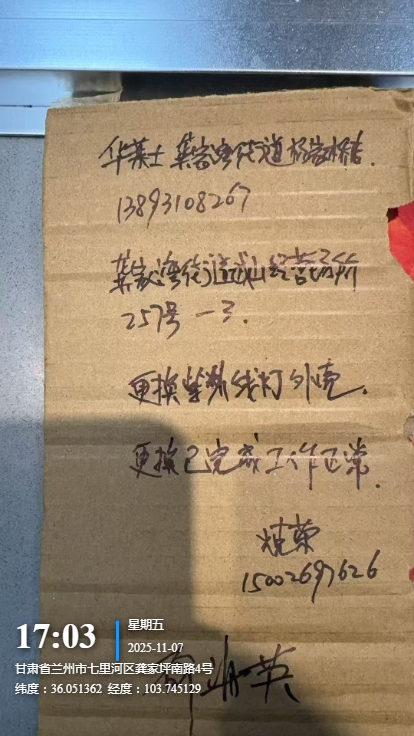 华莱士 龚家湾街道杨家桥店.
13893108267
龚家湾街道武山经营场所
257号一3.
更换紫外线灯外壳.
更换已完成工作正常.
荣
15002697626
英
17:03
星期五
2025-11-07
甘肃省兰州市七里河区龚家坪南路4号
纬度：36.051362 经度：103.745129